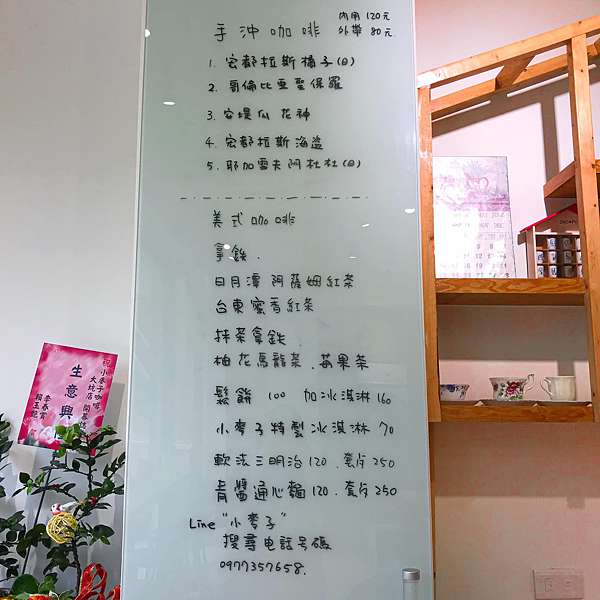 手沖咖啡 內用 120元
外帶 80元
1. 宏都拉斯橘子(日)
2. 哥倫比亞聖保羅
3. 安堤瓜 花神
4. 宏都拉斯海盜
5. 耶加雪夫阿杜杜(日)
美式咖啡
拿鐵.
日月潭 阿薩姆紅茶
台東蜜香紅茶
抹茶拿鐵
柚花烏龍茶.莓果茶
鬆餅 100 加冰淇淋 160
小麥子特製冰淇淋 70
軟法三明治 120.套餐 250
青醬通心麵 120.套餐 250
Line "小麥子"
搜尋电話号碼
0977357658.
祝
小麥子咖啡
大坑店 開幕誌
生意興
李春賞